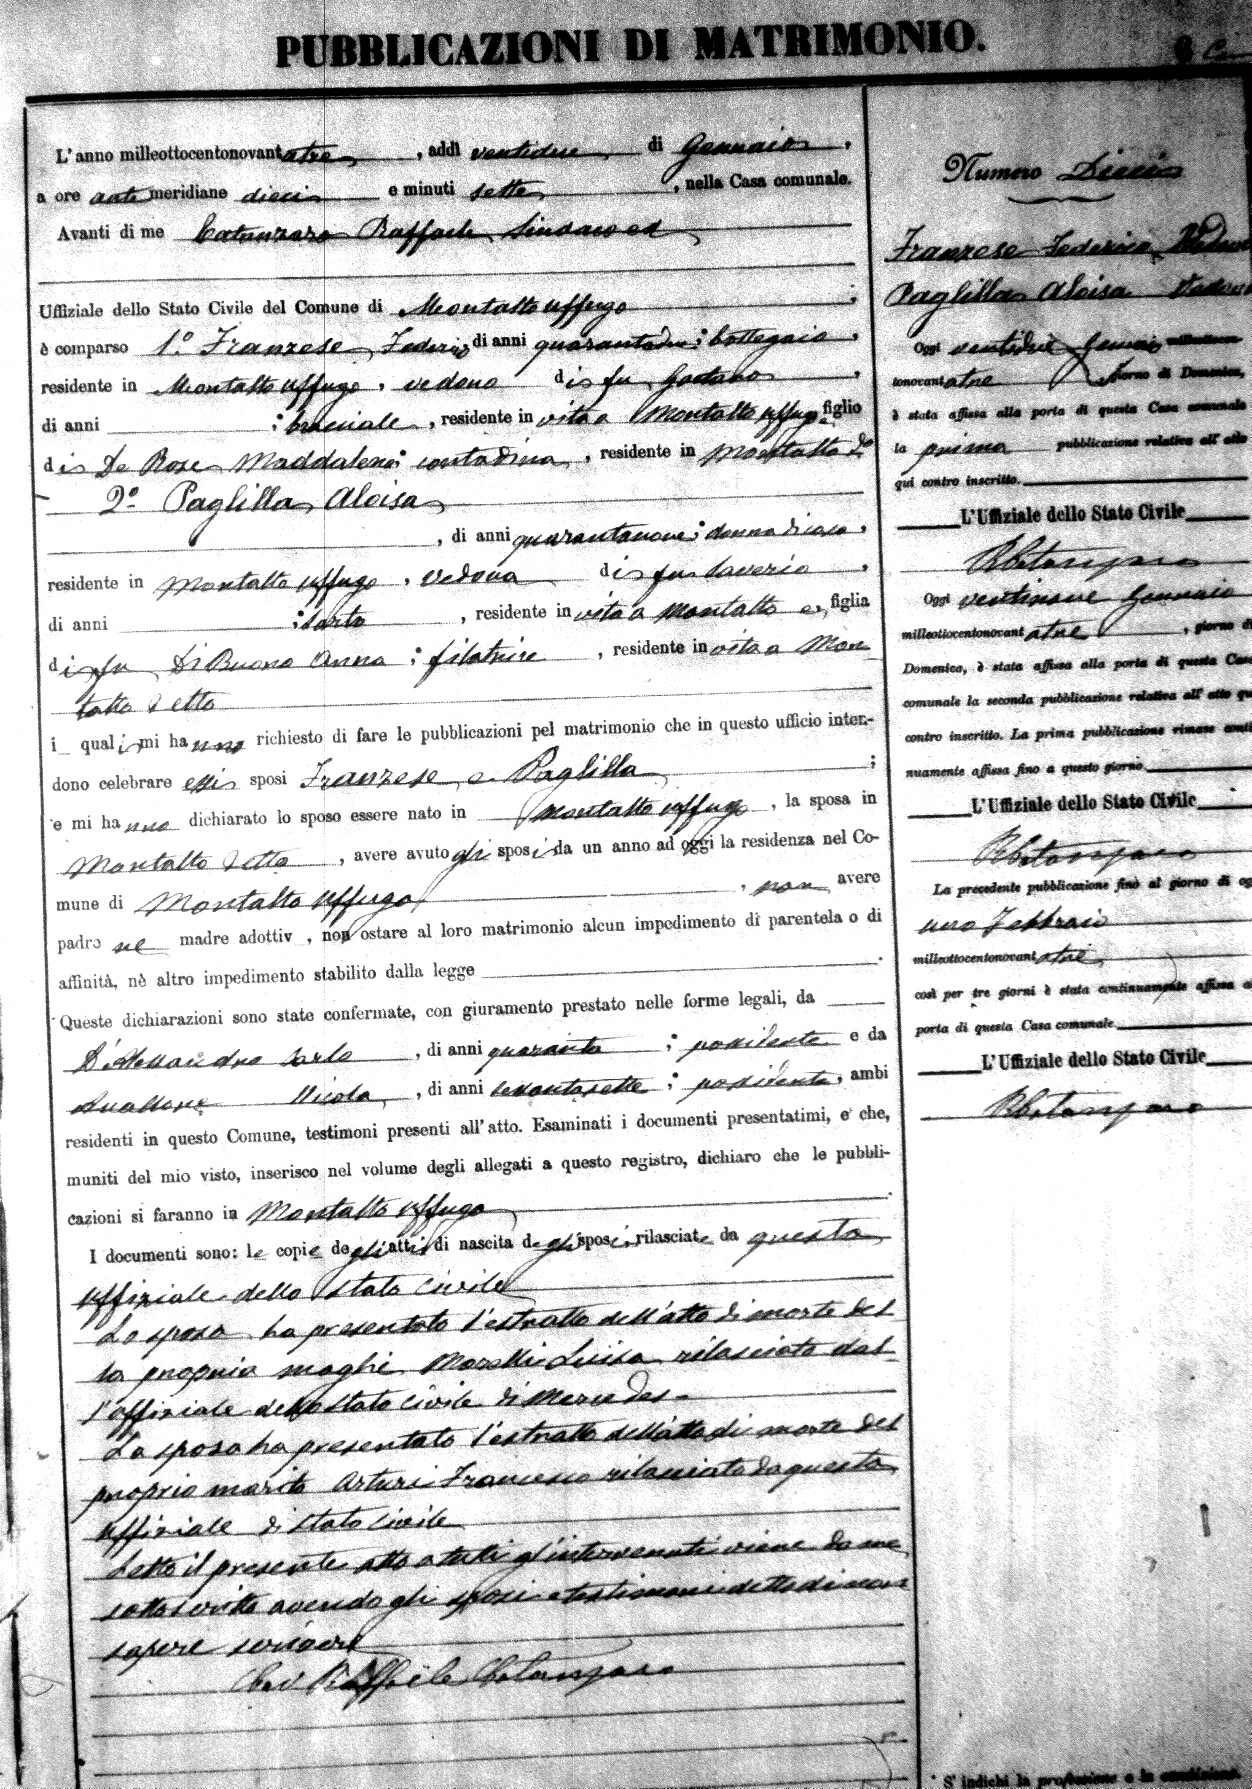 PUBBLICAZIONI DI MATRIMONIO.
L'anno milleottocentonovantatre, addì ventidue di Gennaio,
a ore antemeridiane dieci e minuti sette, nella Casa comunale.
Avanti di me Catanzaro Raffaele Sindaco ed
Uffiziale dello Stato Civile del Comune di Montalto Uffugo;
è comparso 1.° Franzese Federico, di anni quarantadue; bottegaio,
residente in Montalto Uffugo, vedovo di fu Gaetano,
di anni ; bracciale, residente in vita a Montalto Uffugo figlio
di De Rose Maddalena; contadina, residente in Montalto do
2° Paglilla Aloisa
, di anni quarantanove; donna di casa,
residente in Montalto Uffugo, vedova di fu Saverio,
di anni ; sarto, residente in vita a Montalto e, figlia
di fu Di Buono Anna; filatrice, residente in vita a Mon
talto detto
i quali mi hanno richiesto di fare le pubblicazioni pel matrimonio che in questo ufficio inten-
dono celebrare essi sposi Franzese e Paglilla;
e mi hanno dichiarato lo sposo essere nato in Montalto Uffugo, la sposa in
Montalto detto, avere avuto gli sposi da un anno ad oggi la residenza nel Co-
mune di Montalto Uffugo, non avere
padre ne madre adottiv , non ostare al loro matrimonio alcun impedimento di parentela o di
affinità, nè altro impedimento stabilito dalla legge.
Queste dichiarazioni sono state confermate, con giuramento prestato nelle forme legali, da
D'Alessandro Carlo, di anni quaranta; possidente e da
Nicola, di anni sessantasette; possidente, ambi
residenti in questo Comune, testimoni presenti all'atto. Esaminati i documenti presentatimi, e che,
muniti del mio visto, inserisco nel volume degli allegati a questo registro, dichiaro che le pubbli-
cazioni si faranno in Montalto Uffugo.
I documenti sono: le copie degli atti di nascita degli sposi rilasciate da questo
uffiziale dello Stato Civile
Lo sposo ha presentato l'estratto dell'atto di morte del
la propria moglie Morelli Luisa rilasciato dal
l'uffiziale dello Stato Civile di Mercedes.
La sposa ha presentato l'estratto dell'atto di morte del
proprio marito Arturi Francesco rilasciato da questo
uffiziale di Stato Civile
Letto il presente atto a tutti gl'intervenuti viene da me
sottoscritto avendo gli sposi e testimoni detto di non
sapere scrivere
Cav. Raffaele Catanzaro
Numero Dieci
Franzese Federico Vedovo
Paglilla Aloisa Vedova
Oggi ventidue Gennaio milleottocen-
tonovantatre, giorno di Domenica,
è stata affissa alla porta di questa Casa comunale
la prima pubblicazione relativa all'atto
qui contro inscritto.
L'Uffiziale dello Stato Civile
RCatanzaro
Oggi ventinove Gennaio
milleottocentonovantatre, giorno di
Domenica, è stata affissa alla porta di questa Casa
comunale la seconda pubblicazione relativa all'atto qui
contro inscritto. La prima pubblicazione rimase conti-
nuamente affissa fino a questo giorno
L'Uffiziale dello Stato Civile
RCatanzaro
La precedente pubblicazione fino al giorno di og
uno Febbraio
milleottocentonovantatre
così per tre giorni è stata continuamente affissa a
porta di questa Casa comunale.
L'Uffiziale dello Stato Civile
RCatanzaro
S'indichi la professione o la condizione.